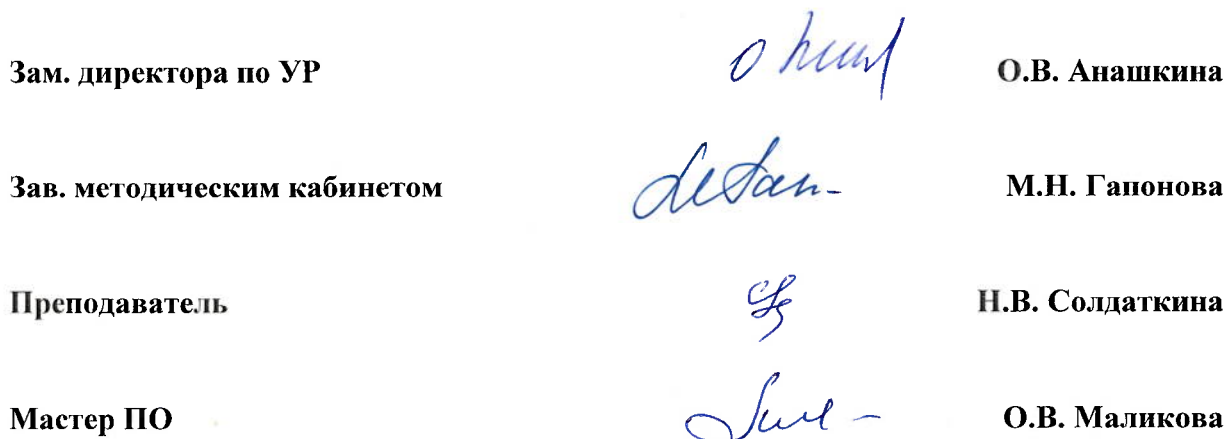 Зам. директора по УР О.В. Анашкина
Зав. методическим кабинетом М.Н. Гапонова
Преподаватель Н.В. Солдаткина
Мастер ПО О.В. Маликова